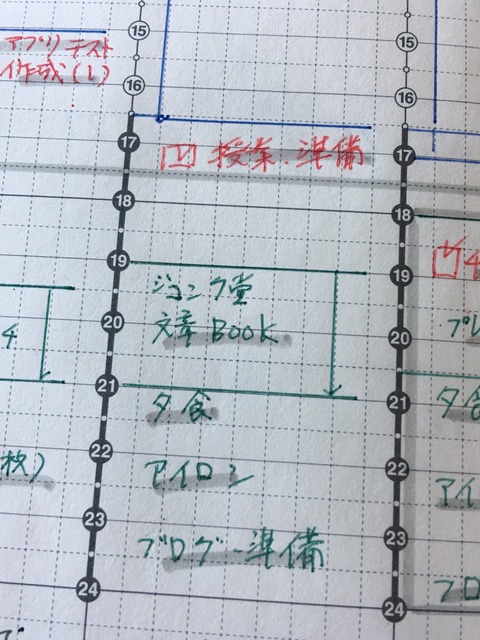 アプリテスト
作成(1)
15
16
17
18
19
20
21
22
23
24
授業・準備
ジュンク堂
文章BOOK
夕食
アイロン
ブログ準備
4
枚)
15
16
17
18
19
20
21
22
23
24
プレ
夕食
アイ
ブロ